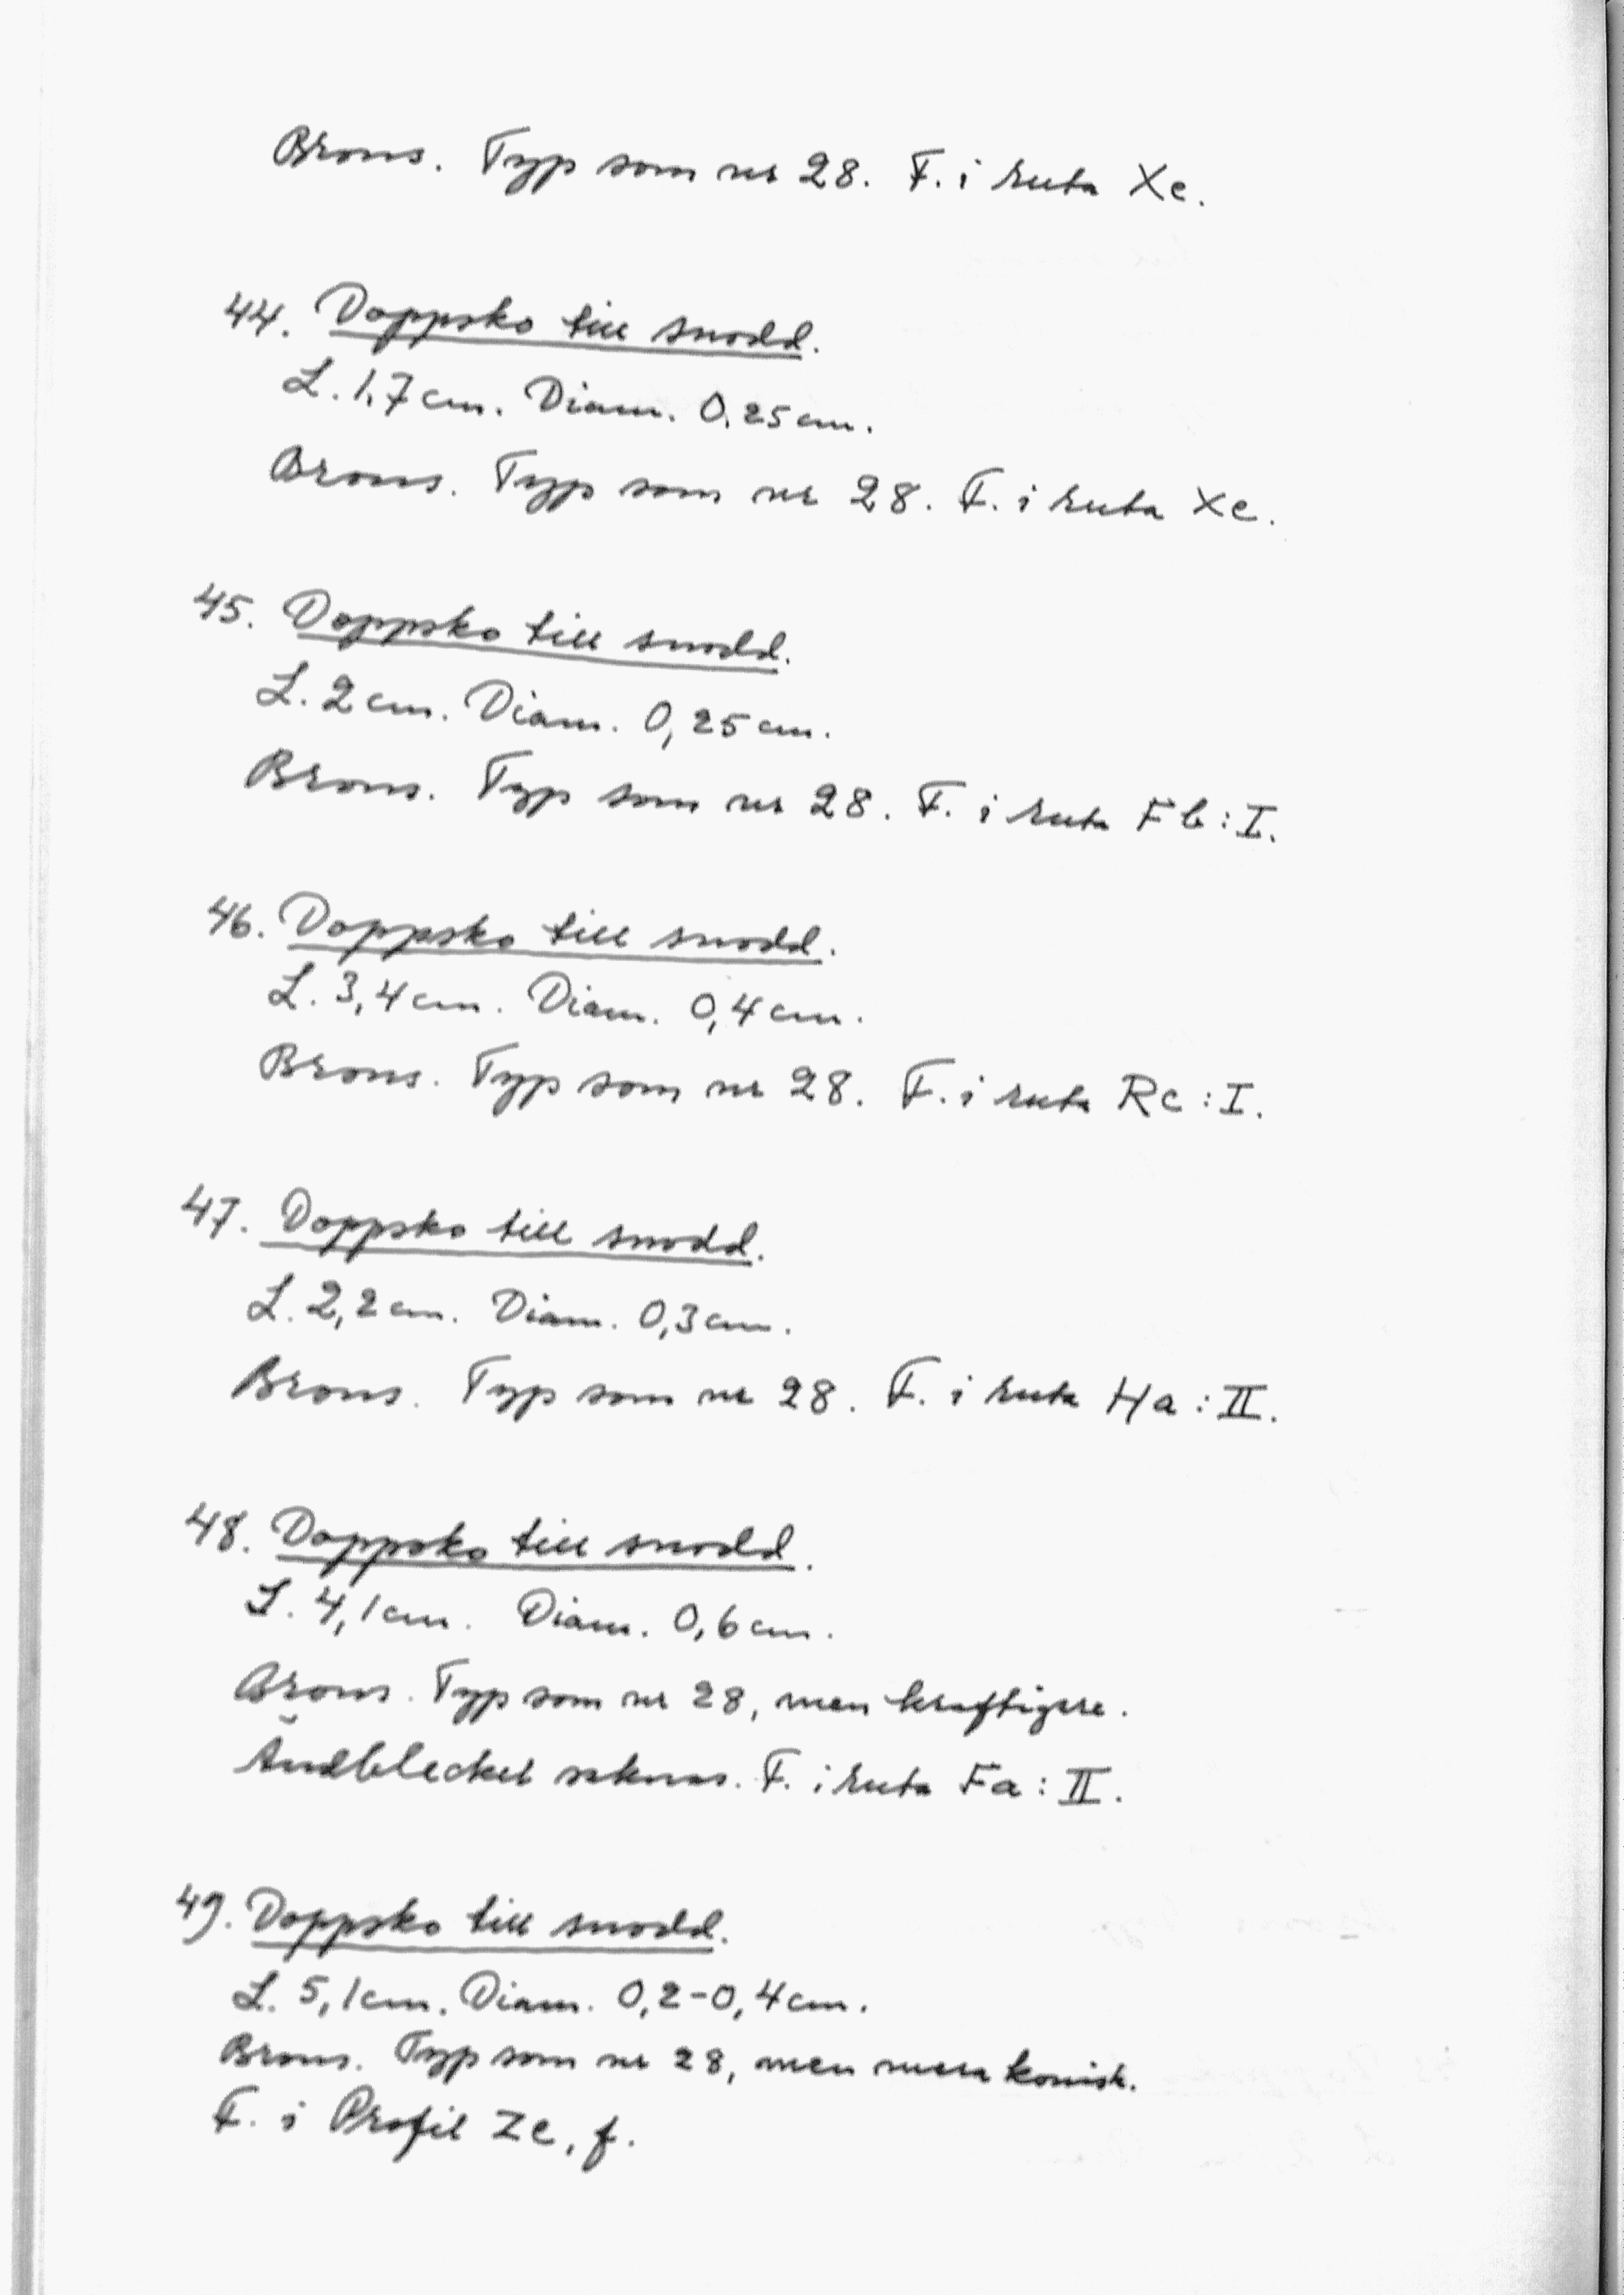 Brons. Typ som nr 28. F. i ruta Xe.
44. Doppsko till snodd.
L. 1,7 cm. Diam. 0,25 cm.
Brons. Typ som nr 28. F. i ruta Xe.
45. Doppsko till snodd.
L. 2 cm. Diam. 0,25 cm.
Brons. Typ som nr 28. F. i ruta Fb : I.
46. Doppsko till snodd.
L. 3,4 cm. Diam. 0,4 cm.
Brons. Typ som nr 28. F. i ruta Rc : I.
47. Doppsko till snodd.
L. 2,2 cm. Diam. 0,3 cm.
Brons. Typ som nr 28. F. i ruta Ha : II.
48. Doppsko till snodd.
L. 4,1 cm. Diam. 0,6 cm.
Brons. Typ som nr 28, men kraftigare.
Ändblecket saknas. F. i ruta Fa : II.
49. Doppsko till snodd.
L. 5,1 cm. Diam. 0,2-0,4 cm.
Brons. Typ som nr 28, men mera konisk.
F. i Profil Ze, f.